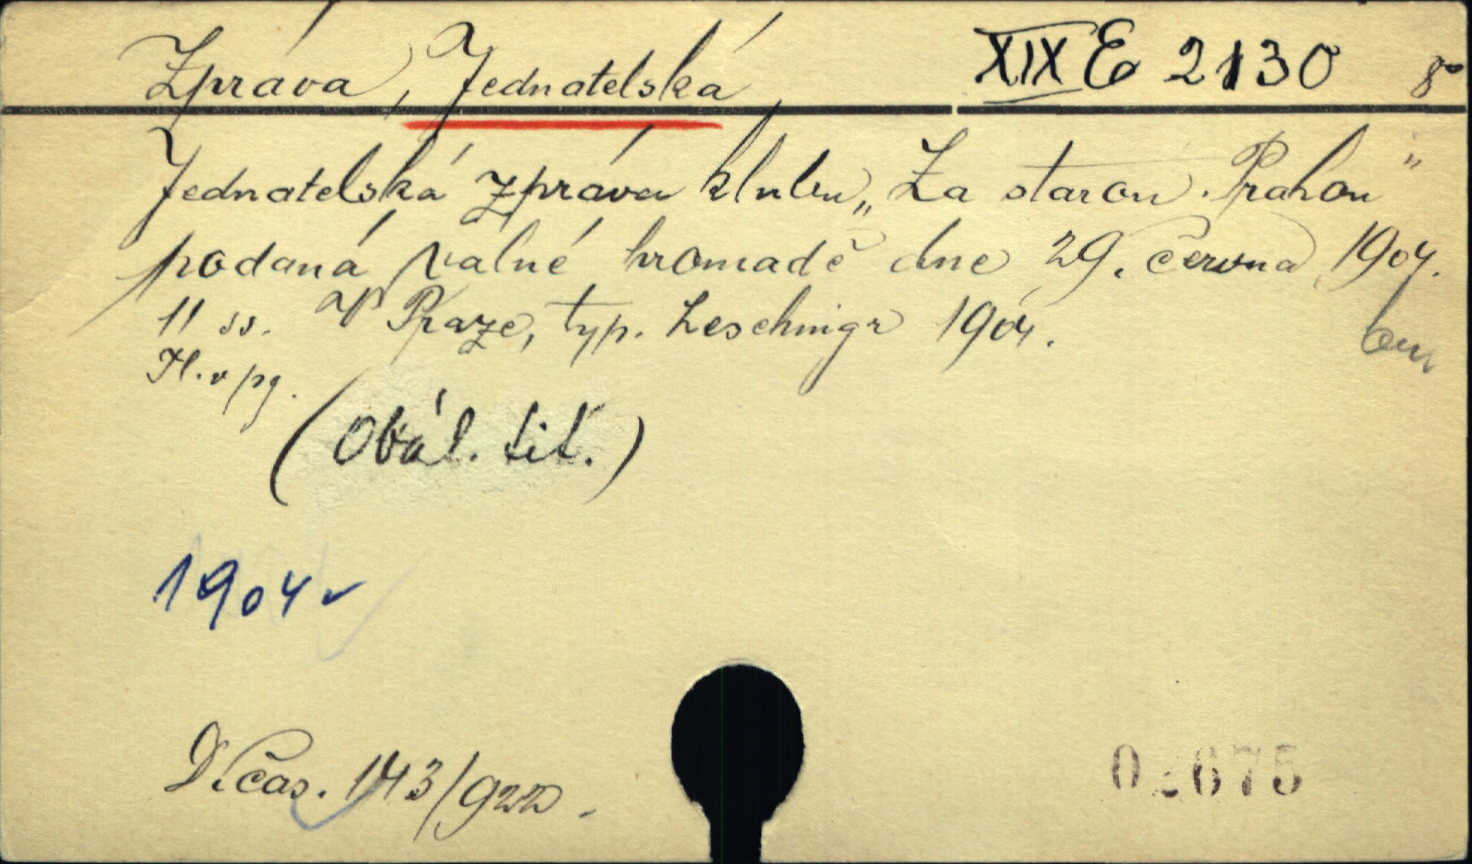 Zpráva, Jednatelská XIX E 2130 8°
Jednatelská zpráva klubu „Za starou Prahou"
podaná valné hromadě dne 29. června 1904.
11 ss. V Praze, typ. Leschingr 1904.
H. v pg.
(Obál. tit.)
1904
D. čas. 143/922.
02675